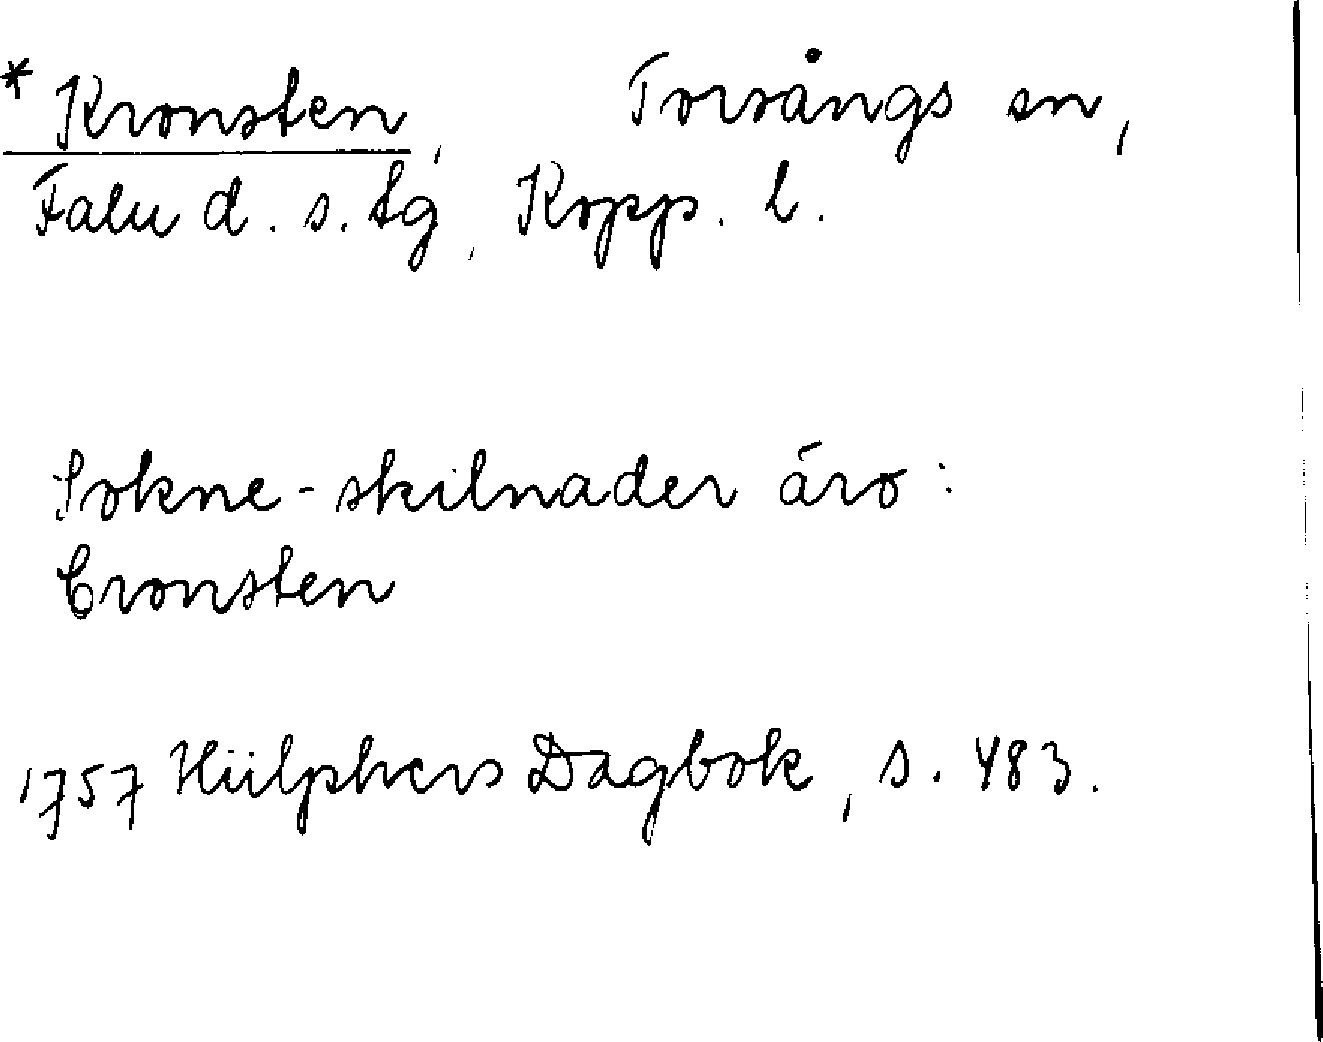 * Kronsten, Torsångs sn,
Falu d. s. tg, Kopp. l.
Sokne-skilnader äro:
Cronsten
1757 Hülphers Dagbok, s. 483.